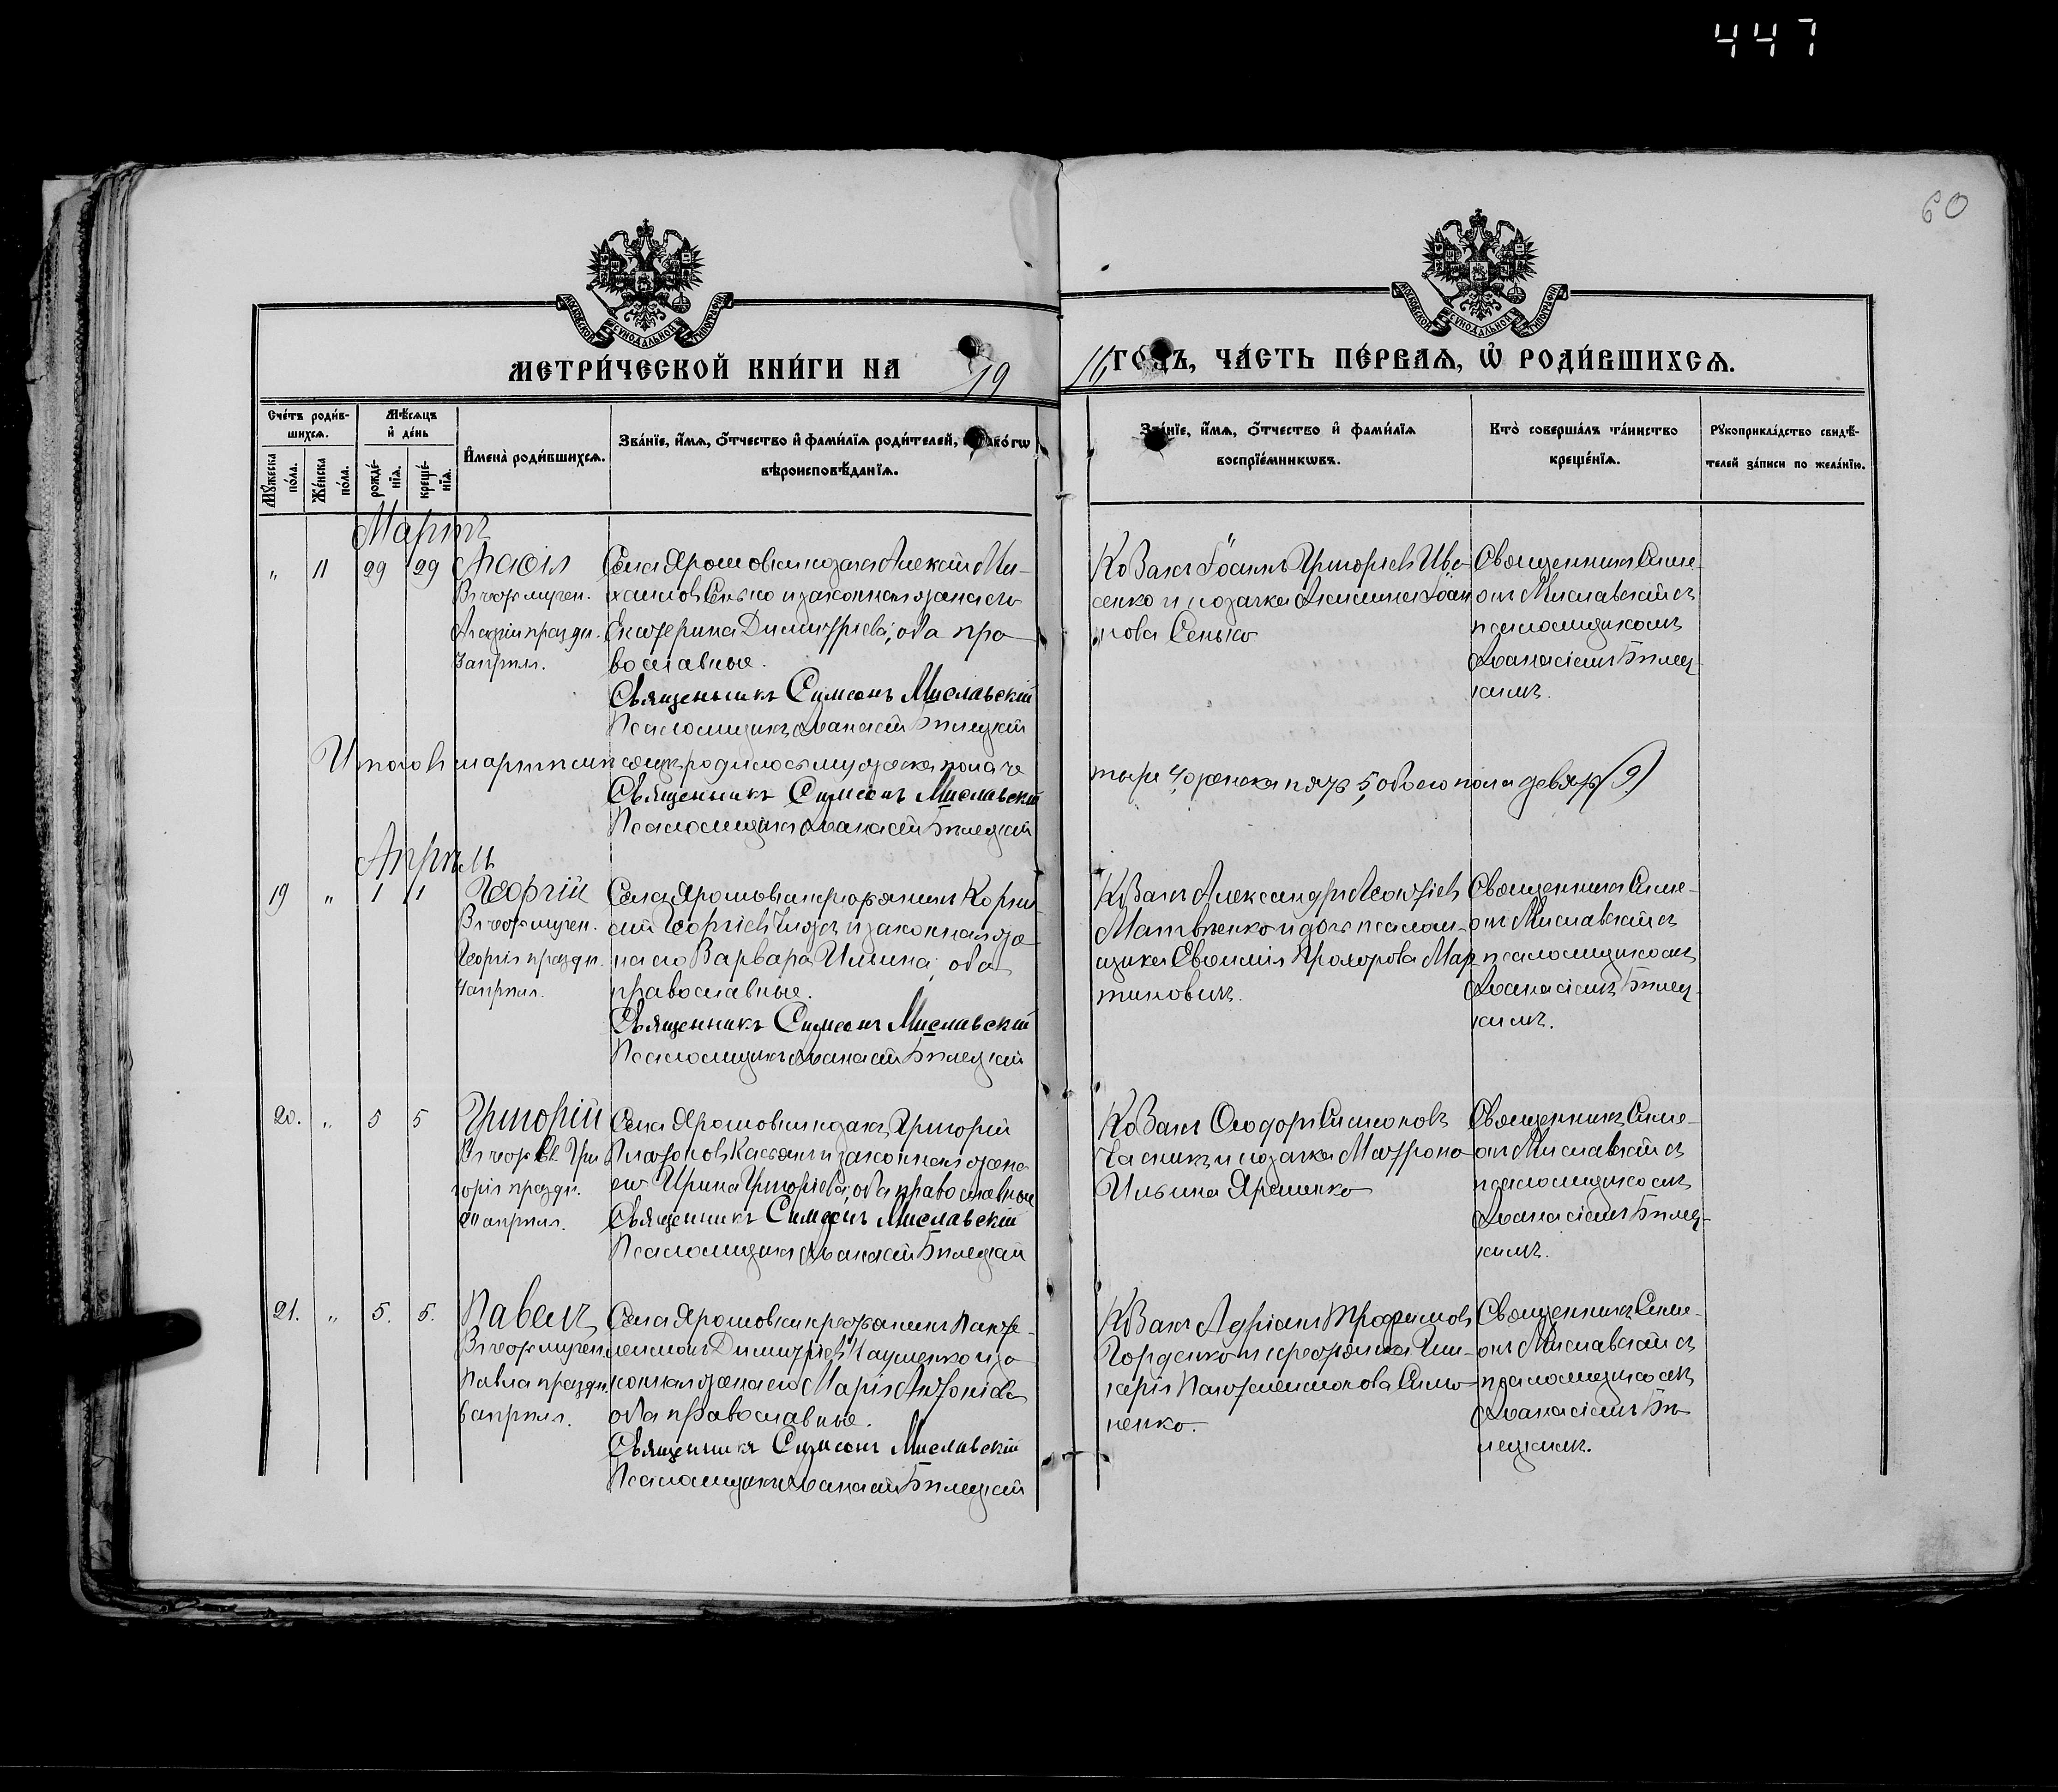 447
60
МОСКОВСКОЙ СѴНОДАЛЬНОЙ ТИПОГРАФІИ
МОСКОВСКОЙ СѴНОДАЛЬНОЙ ТИПОГРАФІИ
МЕТРИ́ЧЕСКОЙ КНИ́ГИ НА 19
ГОДЪ, ЧА́СТЬ ПЕ́РВАѦ, Ѽ РОДИ́ВШИХСѦ.
Сче́тъ роди́в-
шихсѧ.
Мѣ́сѧцъ
и҆ де́нь
Мꙋ́жеска по́ла.
Же́нска по́ла.
рожде́-
нїѧ.
креще́-
нїѧ.
И҆мена̀ роди́вшихсѧ.
Зва́нїе, и҆́мѧ, ѻ҆́тчество и҆ фами́лїѧ роди́телей, и҆ како́гѡ
вѣроисповѣ́данїѧ.
Зва́нїе, и҆́мѧ, ѻ҆́тчество и҆ фами́лїѧ
воспрїе́мникѡвъ.
Кто̀ соверша́лъ та́инство
креще́нїѧ.
Рꙋкоприкла́дство свидѣ́-
телей за́писи по жела́нїю.
Мартъ
" 11 29 29
Въ честь мучен.
праздн.
апрѣля.
Села Ярошовки козакъ Алексій Ми-
хаиловъ Сенько и законная жена его
Екатерина Димитріева, оба пра-
вославные.
Священникъ Симеонъ Миславскій
Псаломщикъ Аѳанасій Бѣлецкій
Козакъ Іоаннъ Григоріевъ Ива-
сенко и козачка Іоан
нова Сенько
Священникъ Симе-
онъ Миславскій съ
псаломщикомъ
Аѳанасіемъ Бѣлец-
кимъ.
Итого въ мартѣ мѣсяцѣ родилось мужеска пола че
тыре 4, женска пять 5, обоего пола девять (9)
Священникъ Симеонъ Миславскій
Псаломщикъ Аѳанасій Бѣлецкій
Апрѣль
19 " 1 1 Георгій
Въ честь мучен.
Георгія праздн.
4 апрѣля.
Села Ярошовки крестьянинъ
Георгіевъ и законная же-
на его Варвара Ильина, оба
православные.
Священникъ Симеонъ Миславскій
Псаломщикъ Аѳанасій Бѣлецкій
Козакъ Александръ Леонтіевъ
Матвѣенко и дочь псалом-
щика Евѳимія Прохорова Мар
тиновичъ.
Священникъ Симе-
онъ Миславскій съ
псаломщикомъ
Аѳанасіемъ Бѣлец-
кимъ.
20. " 5 5 Григорій
Въ честь св. Гри
горія праздн.
апрѣля.
Села Ярошовки козакъ Григорій
Платоновъ Касьянъ и законная жена
его Ирина Григоріева, оба православные
Священникъ Симеонъ Миславскій
Псаломщикъ Аѳанасій Бѣлецкій
Козакъ Ѳеодоръ Симоновъ
Часникъ и козачка Матрона
Ильина Яременко
Священникъ Симе-
онъ Миславскій съ
псаломщикомъ
Аѳанасіемъ Бѣлец-
кимъ.
21. " 5. 5. Павелъ
Въ честь мучен.
Павла праздн.
6 апрѣля.
Села Ярошовки крестьянинъ Панте-
леимонъ Димитріевъ Науменко и за
конная жена его Марія Антоніева
оба православные.
Священникъ Симеонъ Миславскій
Псаломщикъ Аѳанасій Бѣлецкій
Козакъ Адріанъ Трофимовъ
Горденко и крестьянка Гли-
керія Пантелеимонова Симо-
ненко.
Священникъ Симе-
онъ Миславскій съ
псаломщикомъ
Аѳанасіемъ Бѣ
лецкимъ.